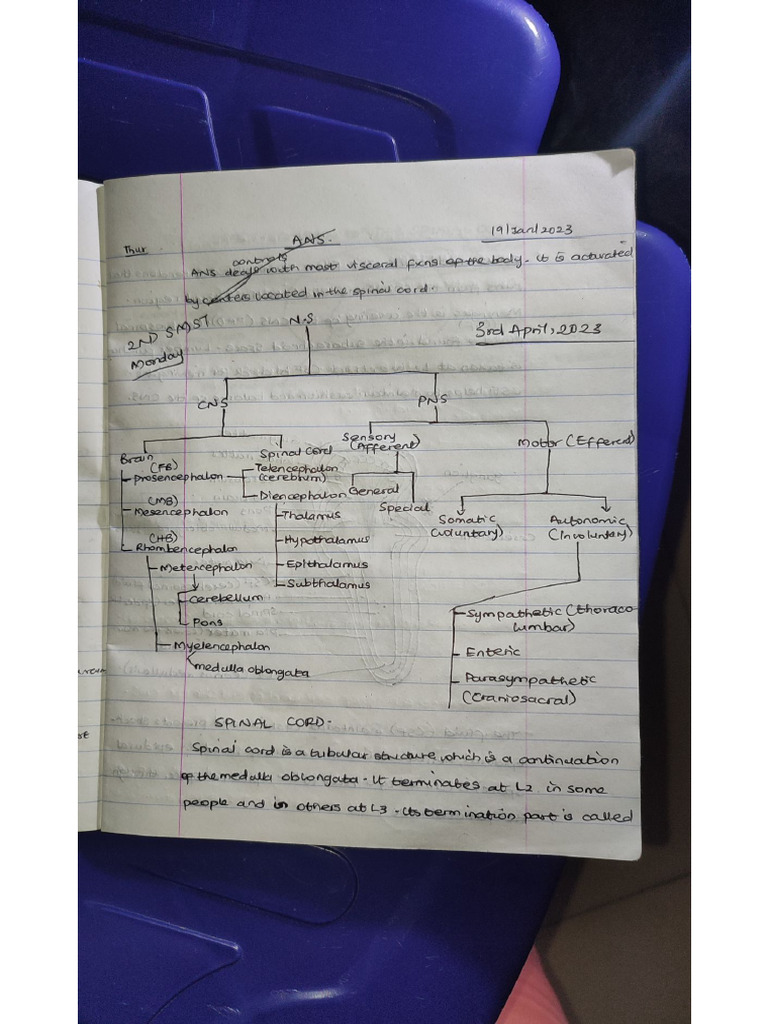 Thur.
ANS.
19/Jan/2023
controls
ANS deals with most visceral fxns of the body. It is activated
by centers located in the spinal cord.
2ND SMST
Monday
N.S
3rd April, 2023
CNS
PNS
Brain
Spinal Cord
Sensory
(Afferent)
Motor (Efferent)
(FB)
Prosencephalon
Telencephalon
(cerebrum)
Diencephalon
General
Special
(MB)
Mesencephalon
Thalamus
Hypothalamus
Epithalamus
Subthalamus
Somatic
(voluntary)
Autonomic
(Involuntary)
(HB)
Rhombencephalon
Metencephalon
Cerebellum
Pons
Myelencephalon
medulla oblongata
Sympathetic (thoraco
lumbar)
Enteric
Parasympathetic
(Craniosacral)
SPINAL CORD.
Spinal cord is a tubular structure which is a continuation
of the medulla oblongata. It terminates at L2 in some
people and in others at L3. Its termination part is called